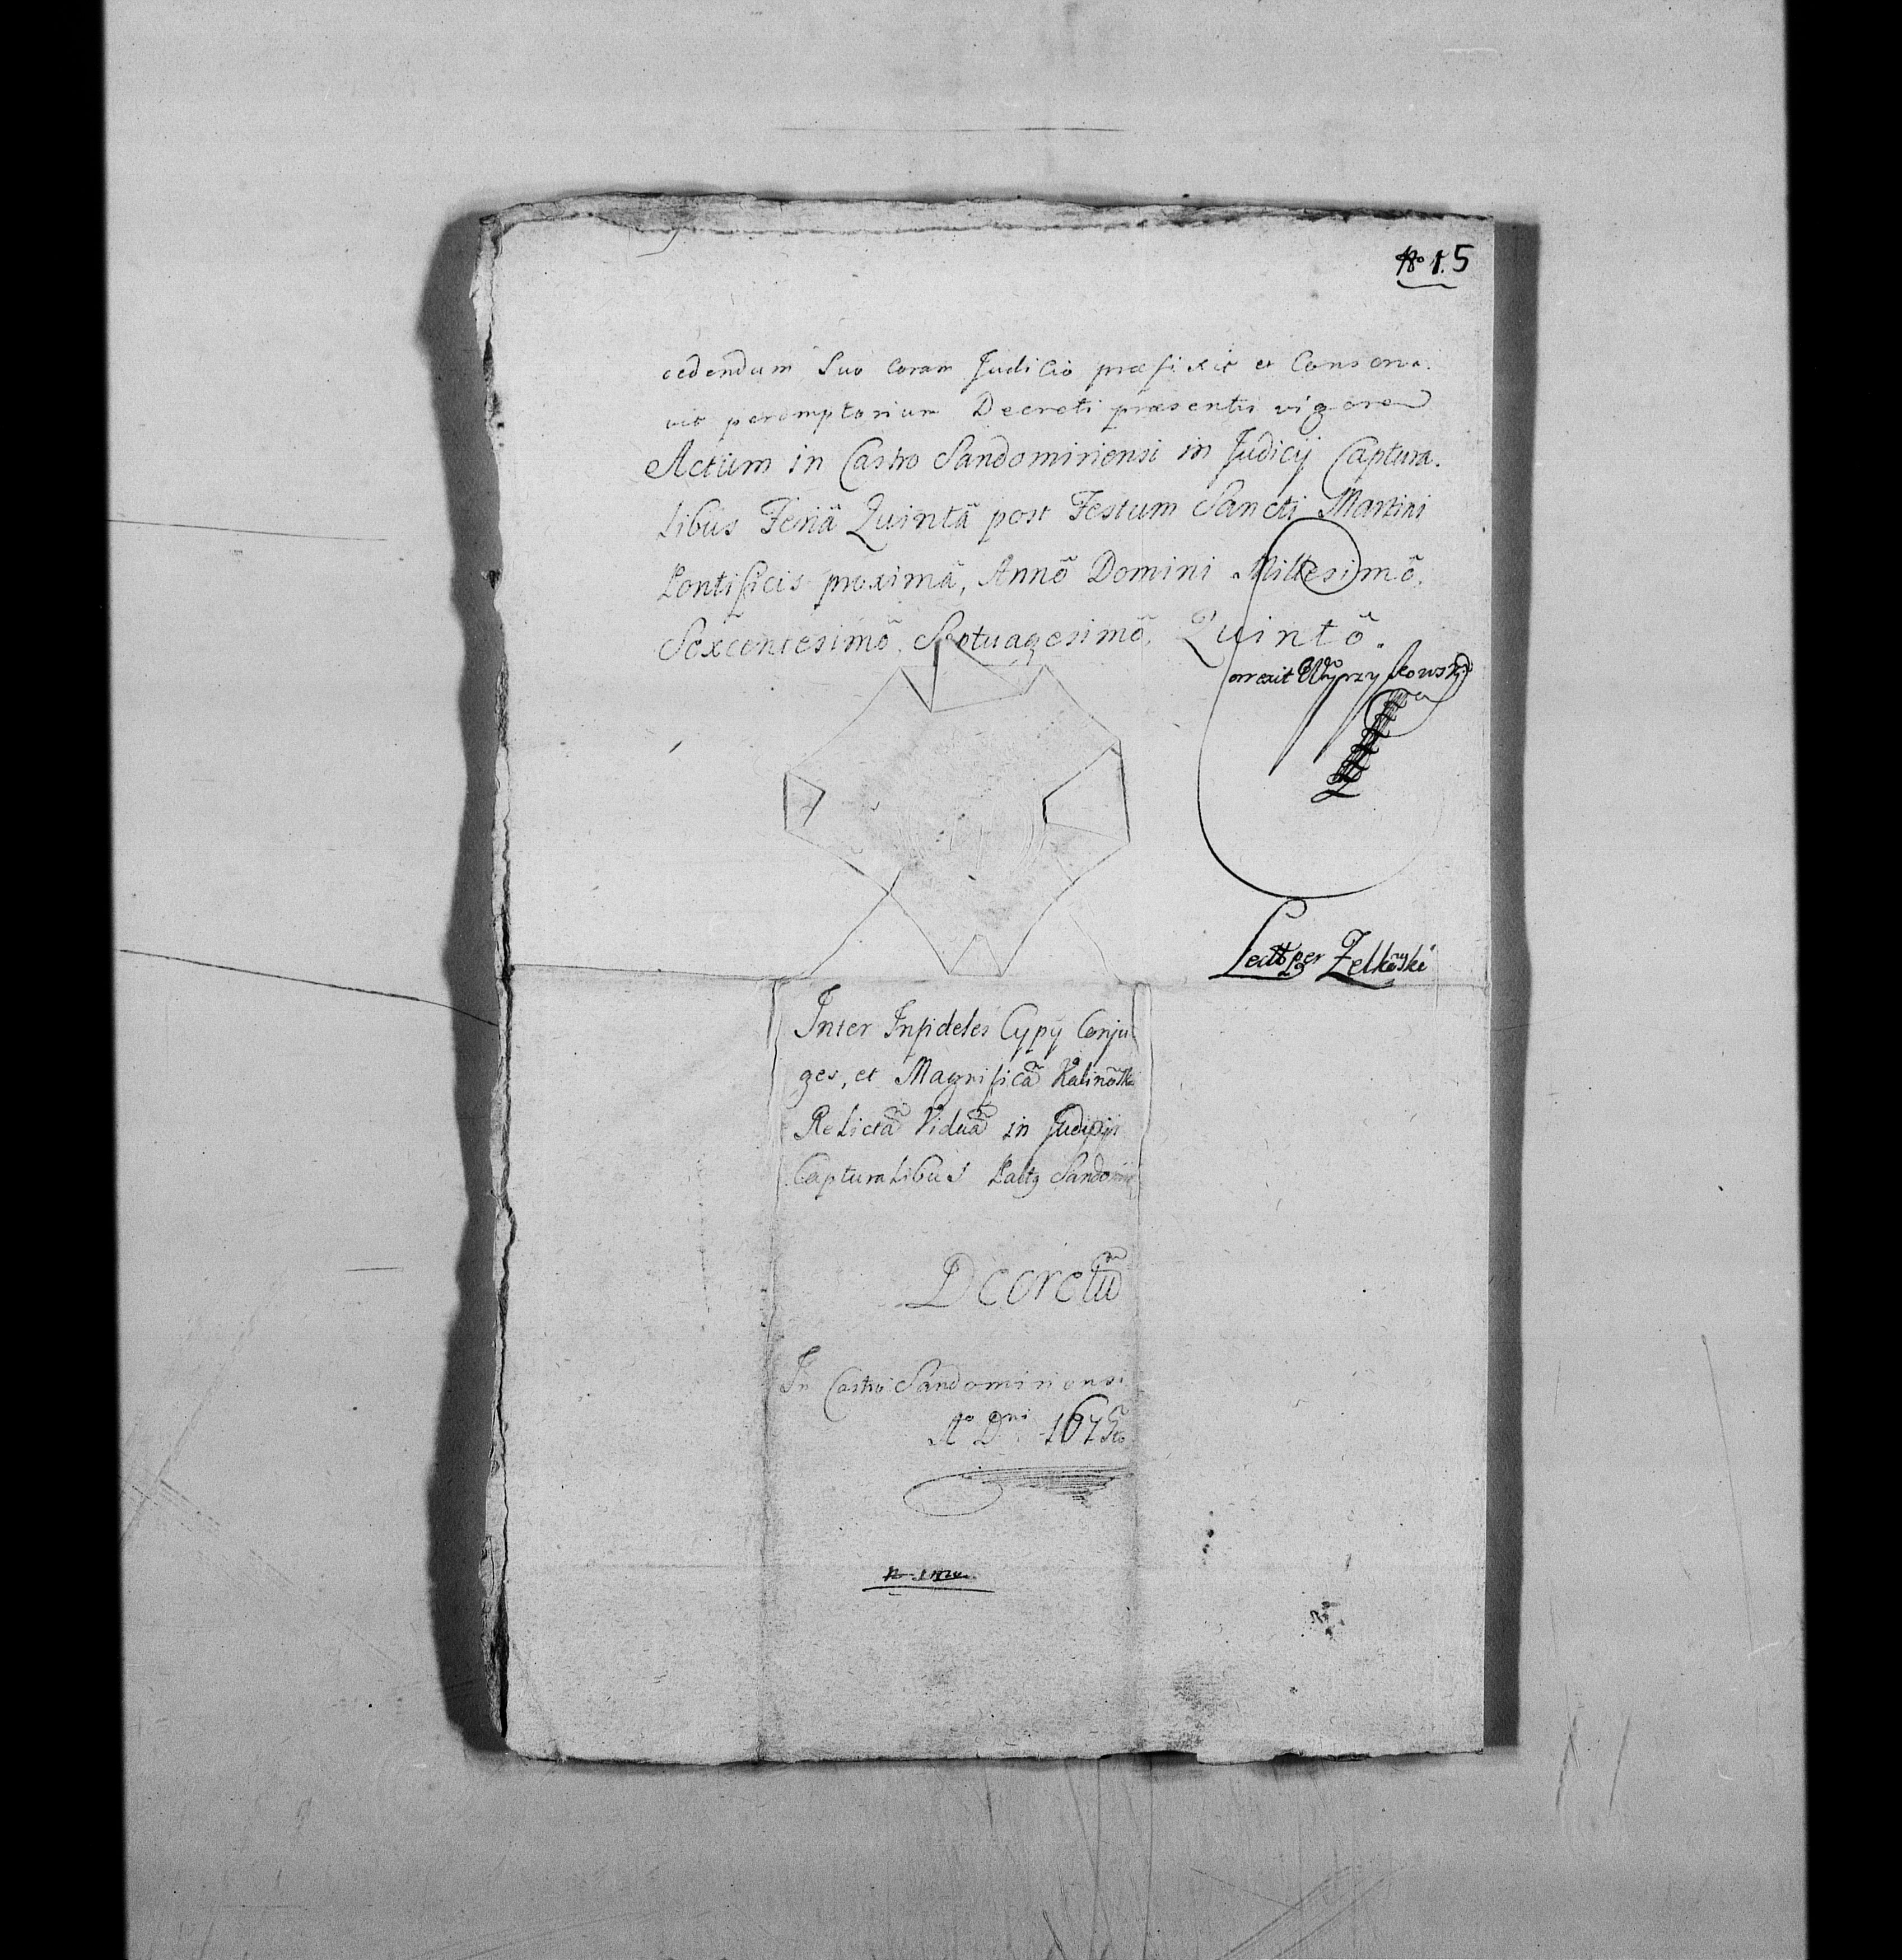 No 1. 5
cedendum Suo coram Judicio præfixit et Conserva-
vit peremptorium Decreti præsentis vigore
Actum in Castro Sandomiriensi in Judicij Captura-
libus Feriâ Quintâ post Festum Sancti Martini
Pontificis proximâ, Annõ Domini Millesimõ,
Sexcentesimõ, Septuagesimõ, Quintõ.
Correxit
Lectũ per Zelkowski
Inter Infideles Cypÿ Conju
ges, et Magnificã
Relictã Viduã in Judicijs
Capturalibus Paltg Sandomir
Decretũ
In Castro Sandomiriensi
Ao Dni 1675to